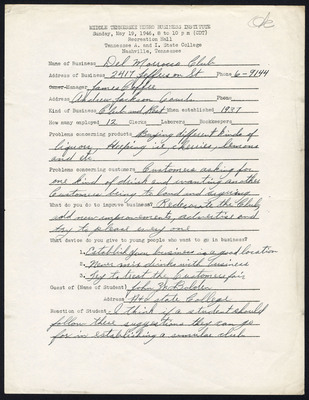 Ok
MIDDLE TENNESSEE NEGRO BUSINESS INSTITUTE
Sunday, May 19, 1946, 8 to 10 p m (CDT)
Recreation Hall
Tennessee A. and I. State College
Nashville, Tennessee
Name of Business Del Morocco Club
Address of Business 2417 Jefferson St Phone 6-9144
Owner-Manager, James
Address Andrew Jackson Phone
Kind of Business Club and Rest When established 1937
How many employed 12 Clerks Laborers Bookkeepers
Problems concerning products Buying different kinds of
liquor, Keeping ice, cherries, lemons
and etc.
Problems concerning customers Customers asking for
one kind of drink and wanting another
Customers being to loud and
What do you do to improve business? Redecorate the Club,
add new improvements, advertise and
try to please every one
What advice do you give to young people who want to go in business?
1. Establish your business in a good location
2. Never mix drinks with business
3. Try to treat the Customers fair
Guest of (Name of Student) John W.
Address A & I state College
Reaction of Student: I think if a student should
follow these suggestions they can go
far in establishing a similar club.